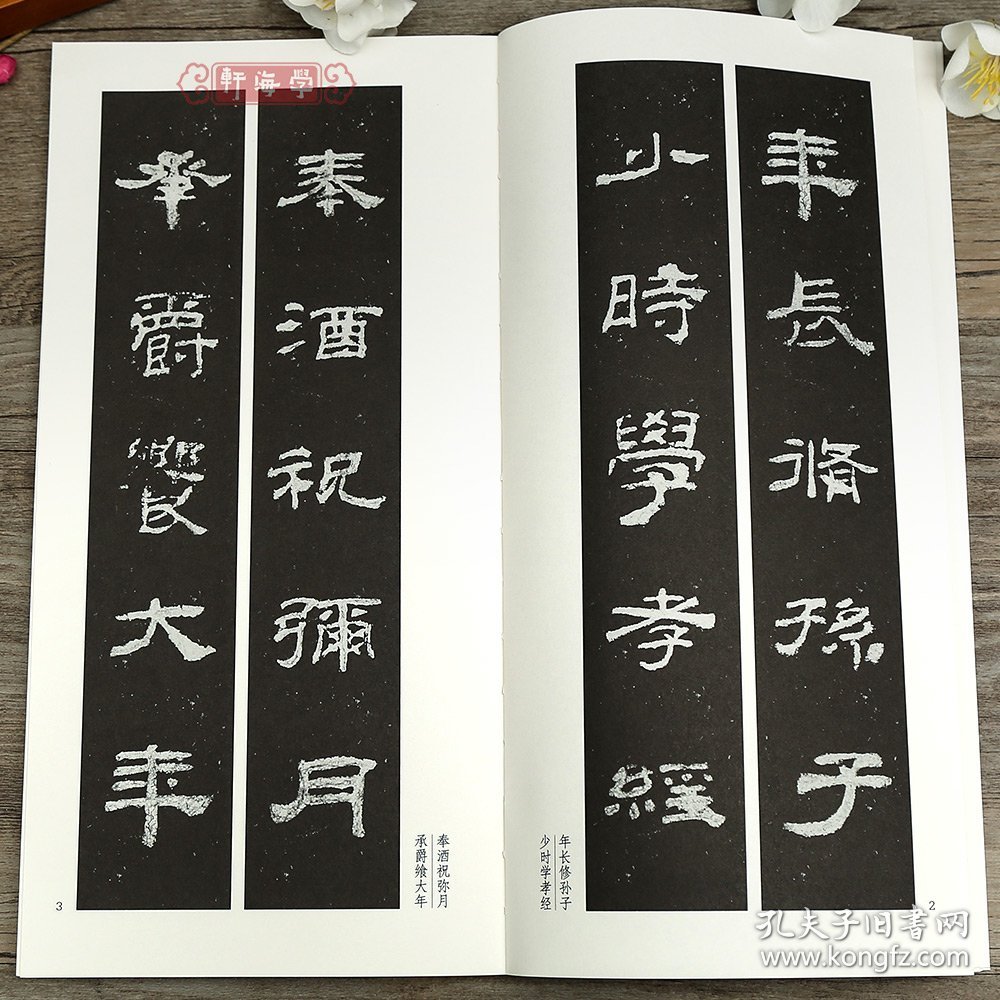 軒海学
年長脩孫子
少時學孝經
年长修孙子
少时学孝经
2
奉酒祝彌月
承爵饗大年
奉酒祝弥月
承爵飨大年
3
孔夫子旧书网
www.kongfz.com